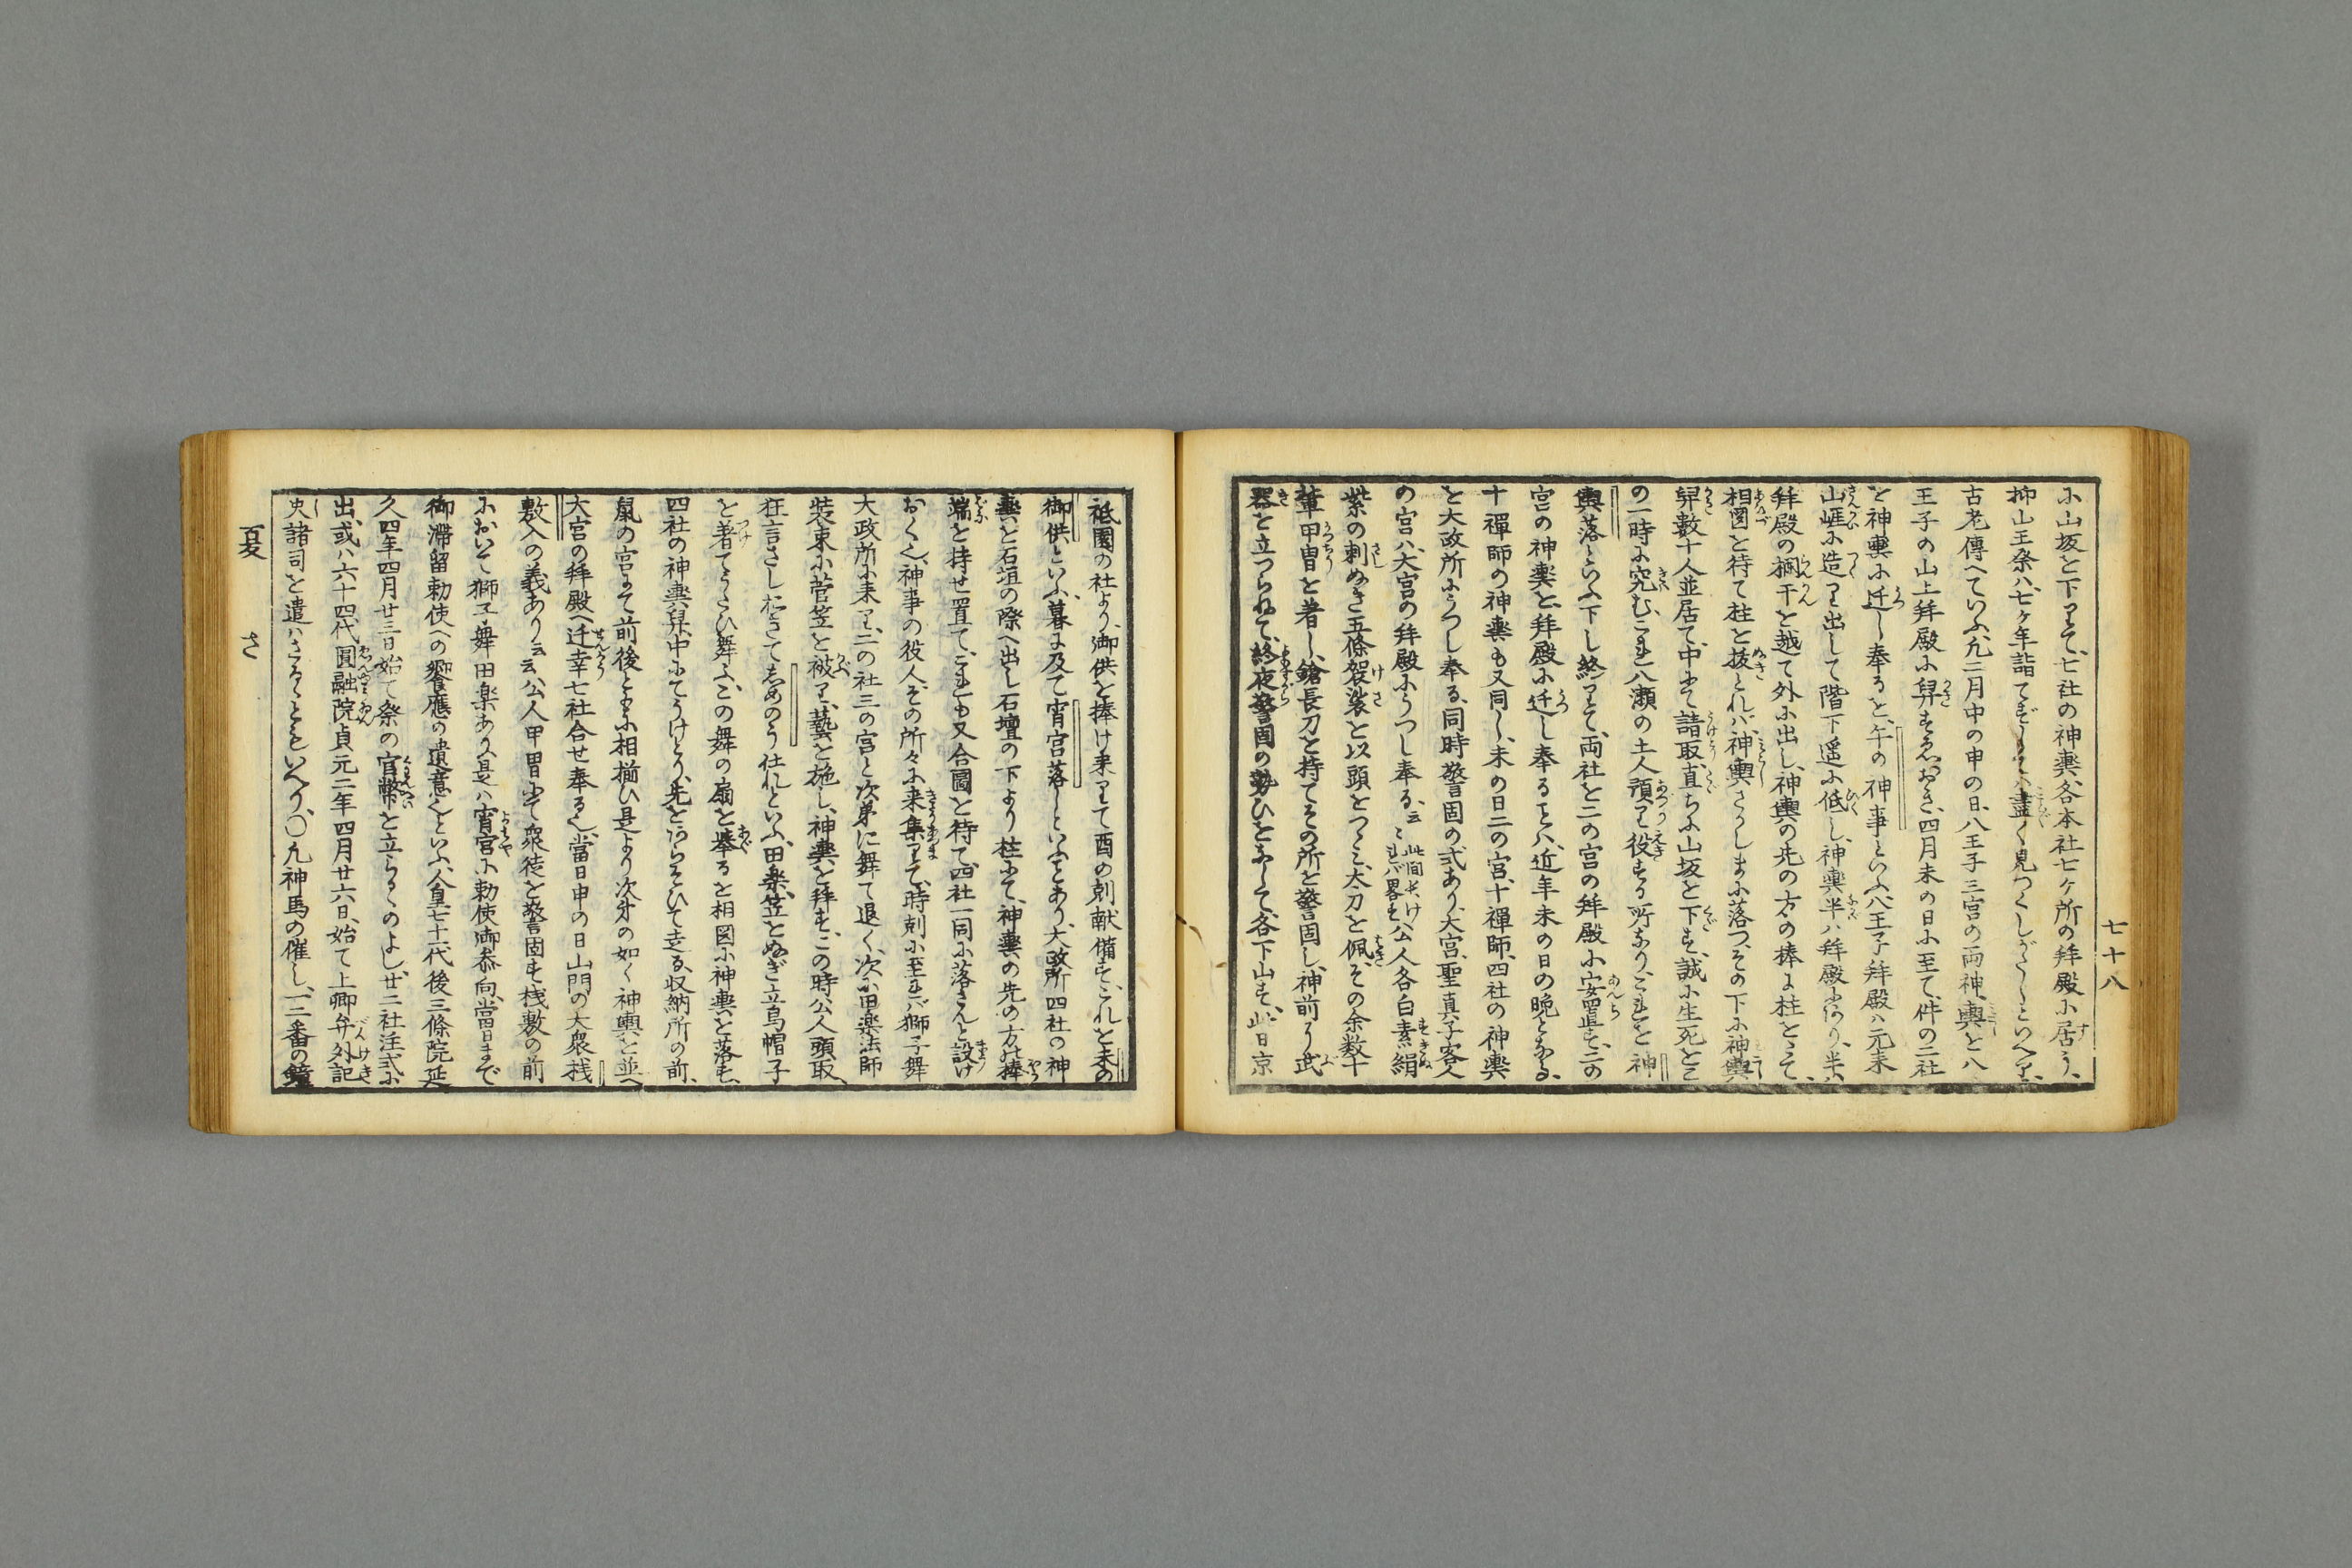 七十八
に山坂を下りて、七社の神輿、各本社七ヶ所の拝殿に居う、
抑山王祭ハ、七ヶ年詣てざりてハ盡く見つくしがたしといへり、
古老傳へていふ、凡二月中の申の日、八王子三宮の両神輿を八
王子の山上拝殿に舁すゑおき、四月未の日に至て、件の二社
を神輿に迁し奉るを、午の神事といふ、八王子拝殿ハ元来
山崕に造り出して階下遥に低し、神輿半ハ拝殿にあり、半ハ
拝殿の掴干を越て外に出し、神輿の先の方の捧に柱をもて、
相図を待て柱を抜とれバ、神輿さかしまに落つ、その下に神輿
舁數十人並居て、中にて請取、直ちに山坂を下す、誠に生死をこ
の一時に究む、これ八瀬の土人預り役する所なり、これを神
輿落といふ、下し終りて、両社を二の宮の拝殿に安置す、二の
宮の神輿を、拝殿に迁し奉ることハ、近年未の日の晩となる、
十禪師の神輿も又同し、未の日二の宮、十禪師、四社の神輿
を大政所にうつし奉る、同時警固の式あり、大宮、聖真子、客人
の宮ハ、大宮の拝殿にうつし奉る、云云 此間長けれバ畧す 公人各白素絹
紫の刺ぬき五條袈裟を以頭をつゝミ、太刀を佩、その余数十
輩甲冑を著し、鎗長刀を持てその所を警固し、神前より武
器を立つらねて、終夜警固の勢ひをなして、各下山す、此日京
祗園の社より、御供を捧け来りて酉の剋献備す、これを未の
御供といふ、暮に及て宵宮落しといふことあり、大政所四社の神
輿を石垣の際へ出し石壇の下より柱にて、神輿の先の方の捧
端を持せ置て、これも又合圖を待て、四社一同に落さんと設け
おく也、神事の役人その所々に来集りて、時剋に至れバ獅子舞
大政所に来り、二の社三の宮と次第に舞て退く、次に田楽法師
装束に菅笠を被り、藝を施し、神輿を拝す、この時公人頭取、
狂言さし拍きてしめのう仕れといふ、田楽、笠をぬぎ立烏帽子
を著てうたひ舞ふ、この舞の扇を挙るを相図に神輿を落す、
四社の神輿舁、中にてうけとり、先をあらそひて走る、収納所の前、
鼠の宮まて前後ともに相揃ひ是より次第の如く神輿を並へ
大宮の拝殿へ迁幸七社合せ奉る也、當日申の日山門の大衆桟
敷入の義あり云云、公人甲冑にて衆徒を警固す、桟敷の前
において獅子舞田楽あり、是ハ宵宮に勅使御参向、當日まで
御滞留勅使への饗應の遺意也といふ、人皇七十一代後三條院延
久四年四月廿三日始て祭の官幣を立らるゝのよし、廿二社注式に
出、或ハ六十四代、圓融院貞元二年四月廿六日、始て上卿弁外記
史諸司を遣ハさるゝともいへり、〇凡神馬の催し、一二番の鐘
夏 さ